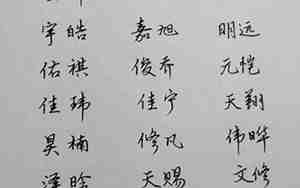 宇皓 嘉旭 明远
佑祺 俊乔 元恺
佳玮 佳宁 天翔
昊楠 修凡 伟晔
天赐 文修